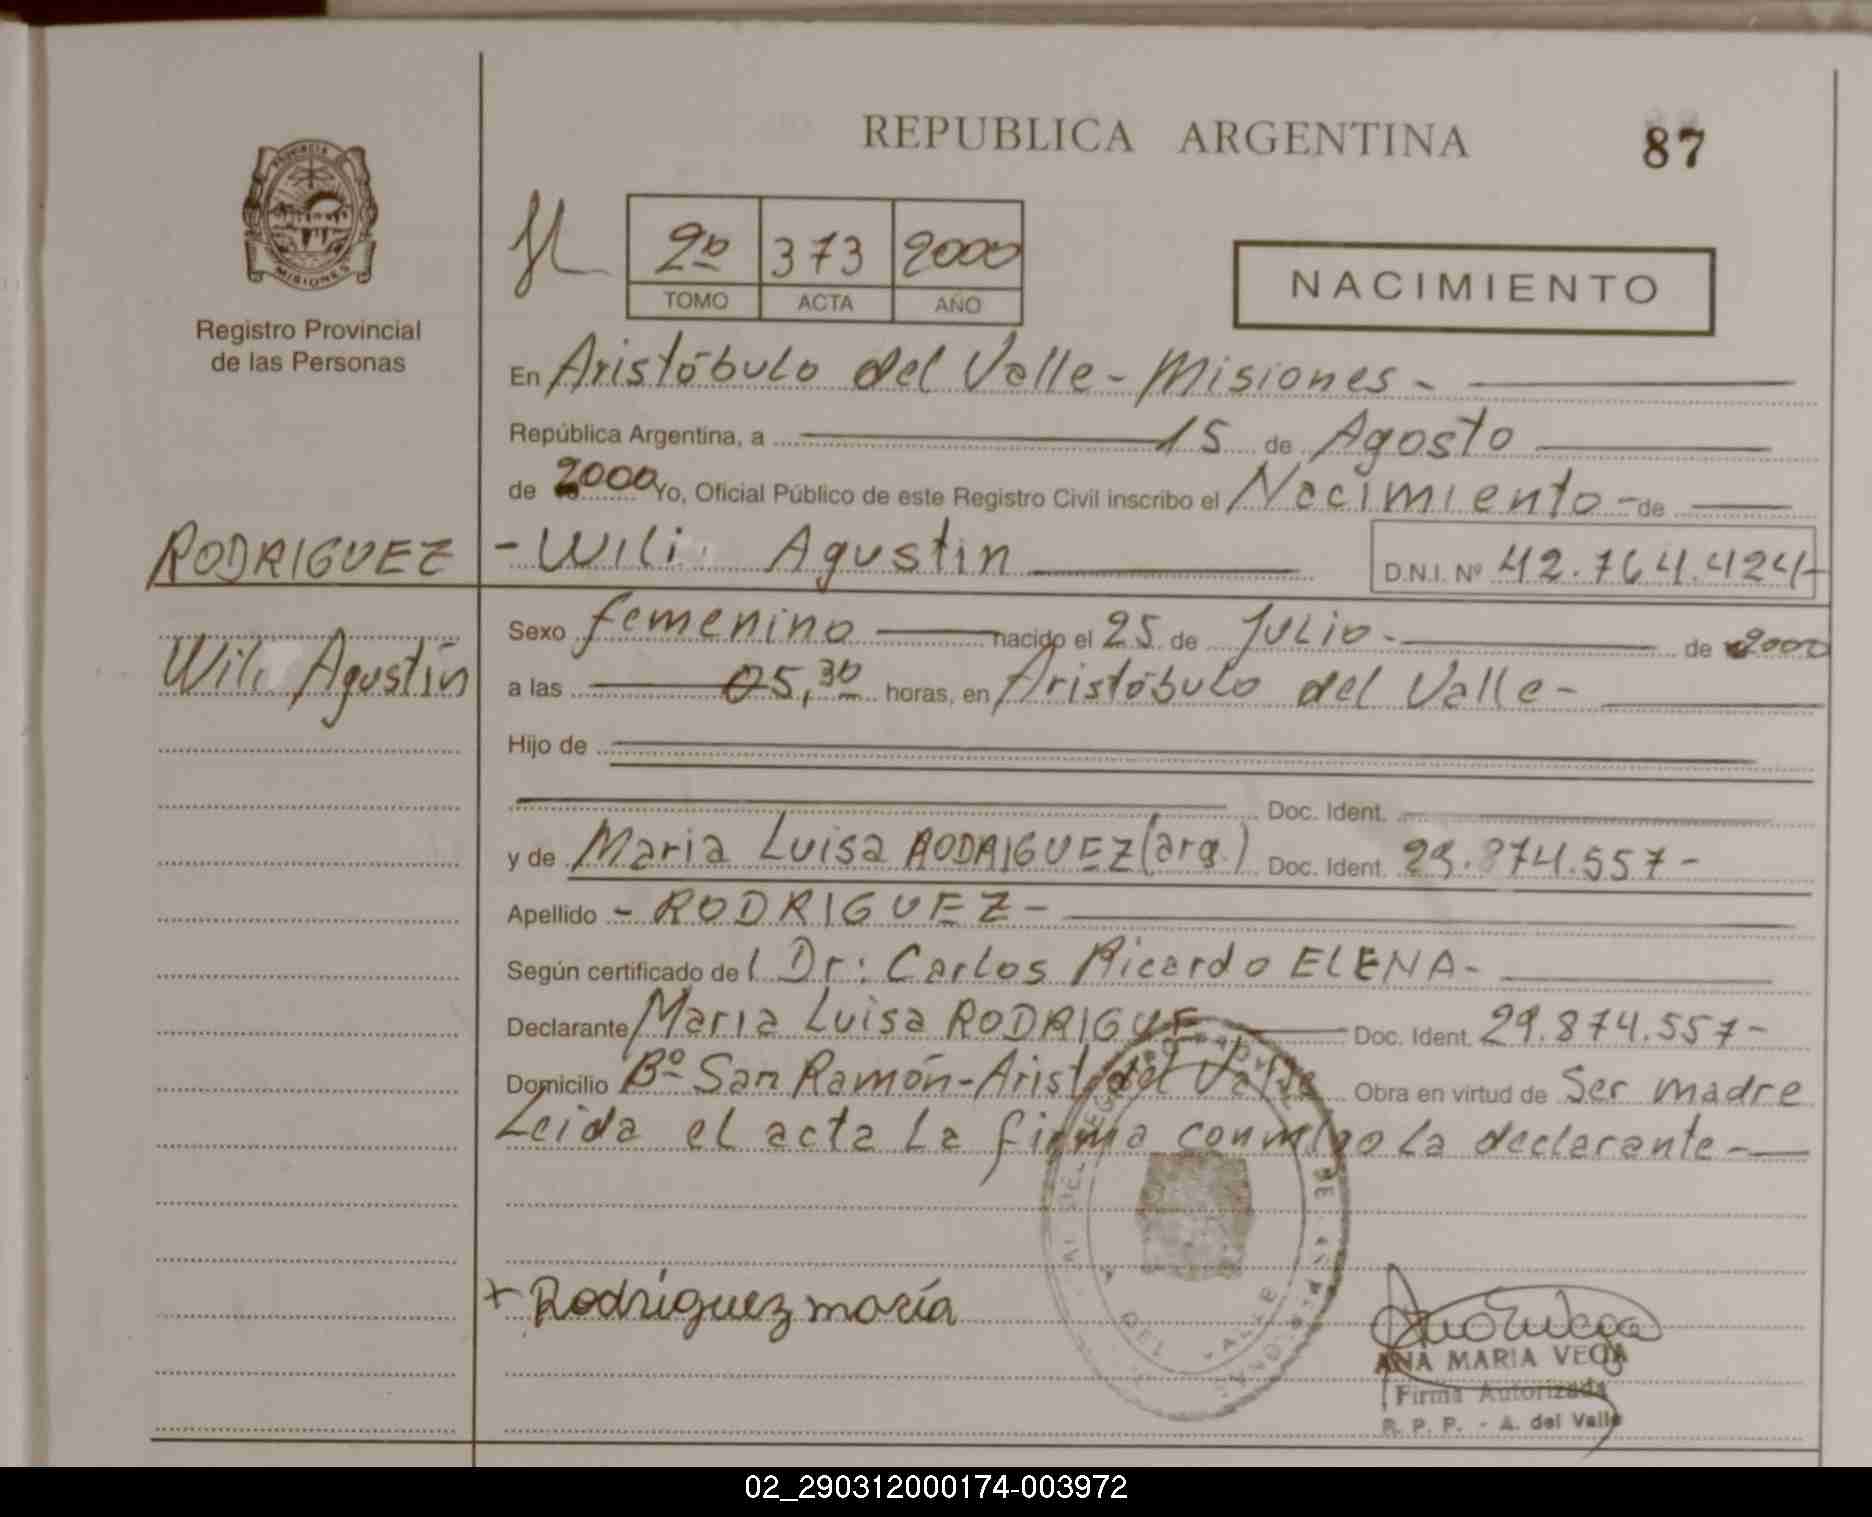 REPUBLICA ARGENTINA
87
PROVINCIA
MISIONES
Registro Provincial
de las Personas
2º 373 2000
TOMO ACTA AÑO
NACIMIENTO
En Aristóbulo del Valle - Misiones -
República Argentina, a 15 de Agosto
de 2000 Yo, Oficial Público de este Registro Civil inscribo el Nacimiento - de
RODRIGUEZ
- Wili Agustin
D.N.I. Nº 42.764.424-
Wili Agustín
Sexo femenino nacido el 25 de Julio - de 2000
a las 05,30 horas, en Aristóbulo del Valle -
Hijo de
Doc. Ident.
y de Maria Luisa RODRIGUEZ (arg.) Doc. Ident. 29.874.557 -
Apellido - RODRIGUEZ -
Según certificado del Dr: Carlos Ricardo ELENA -
Declarante Maria Luisa RODRIGUE Doc. Ident. 29.874.557 -
Domicilio Bº San Ramón - Arist. del Valle Obra en virtud de Ser madre
Leida el acta la firma conmigo la declarante -
+ Rodríguez maría
DEL VALLE
ANA MARIA VEGA
Firma Autorizada
R. P. P. - A. del Valle
02_290312000174-003972